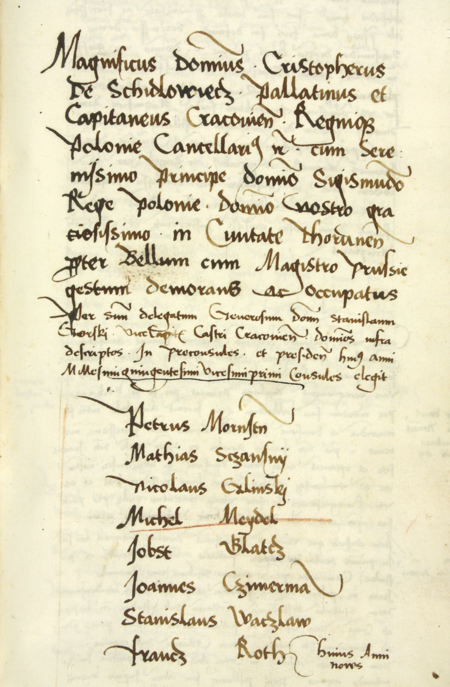 Magnificus dominus Cristopherus
De Schidlowiecz Pallatinus et
Capitaneus Cracovien Regniq
Polonie Cancellari 9 cum Sere
nissimo principe domino Sigismundo
Rege polonie domino nostro gra
tiosissimo in Civitate Thorunen
propter Bellum cum Magistro prussie
gestum demorans ac occupatus
Per suum delegatum Generosum domin Stanislaum
Gorski vice Castri Cracovien dominos infra
descriptos In Proconsules et presiden huius anni
quingentesimi vicesimi primi Consules elegit
Petrus Mornstn
Mathias
Nicolaus Gzlinskj
Michel Meydel
Jobst Glatcz
Joannes Czimerma
Stanislaus Waczlaw
Francz Roth huius Anni
novus